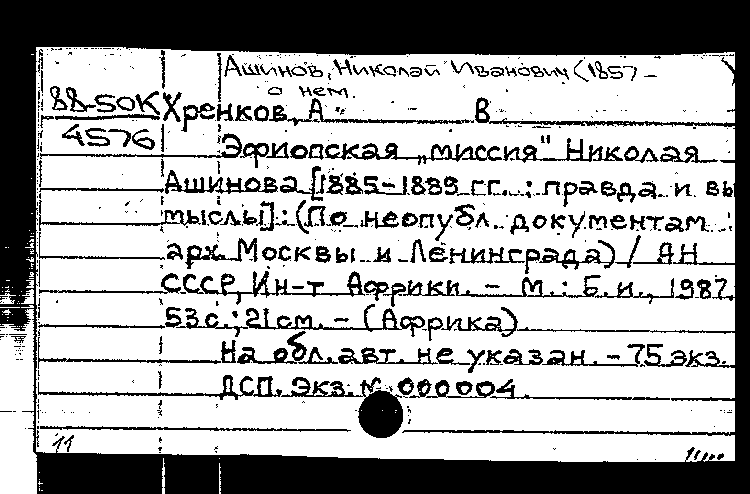 Ашинов, Николай Иванович (1857 – )
о нем.
88-50К Хренков, А. В
4576
Эфиопская „миссия" Николая
Ашинова [1885-1889 гг. : правда и вы
мыслы] : (По неопубл. документам
арх. Москвы и Ленинграда) / АН
СССР, Ин-т Африки. - М. : Б.и., 1987.
53 с. ; 21 см. - (Африка).
На обл. авт. не указан. - 75 экз.
ДСП. Экз. № 000004.
11